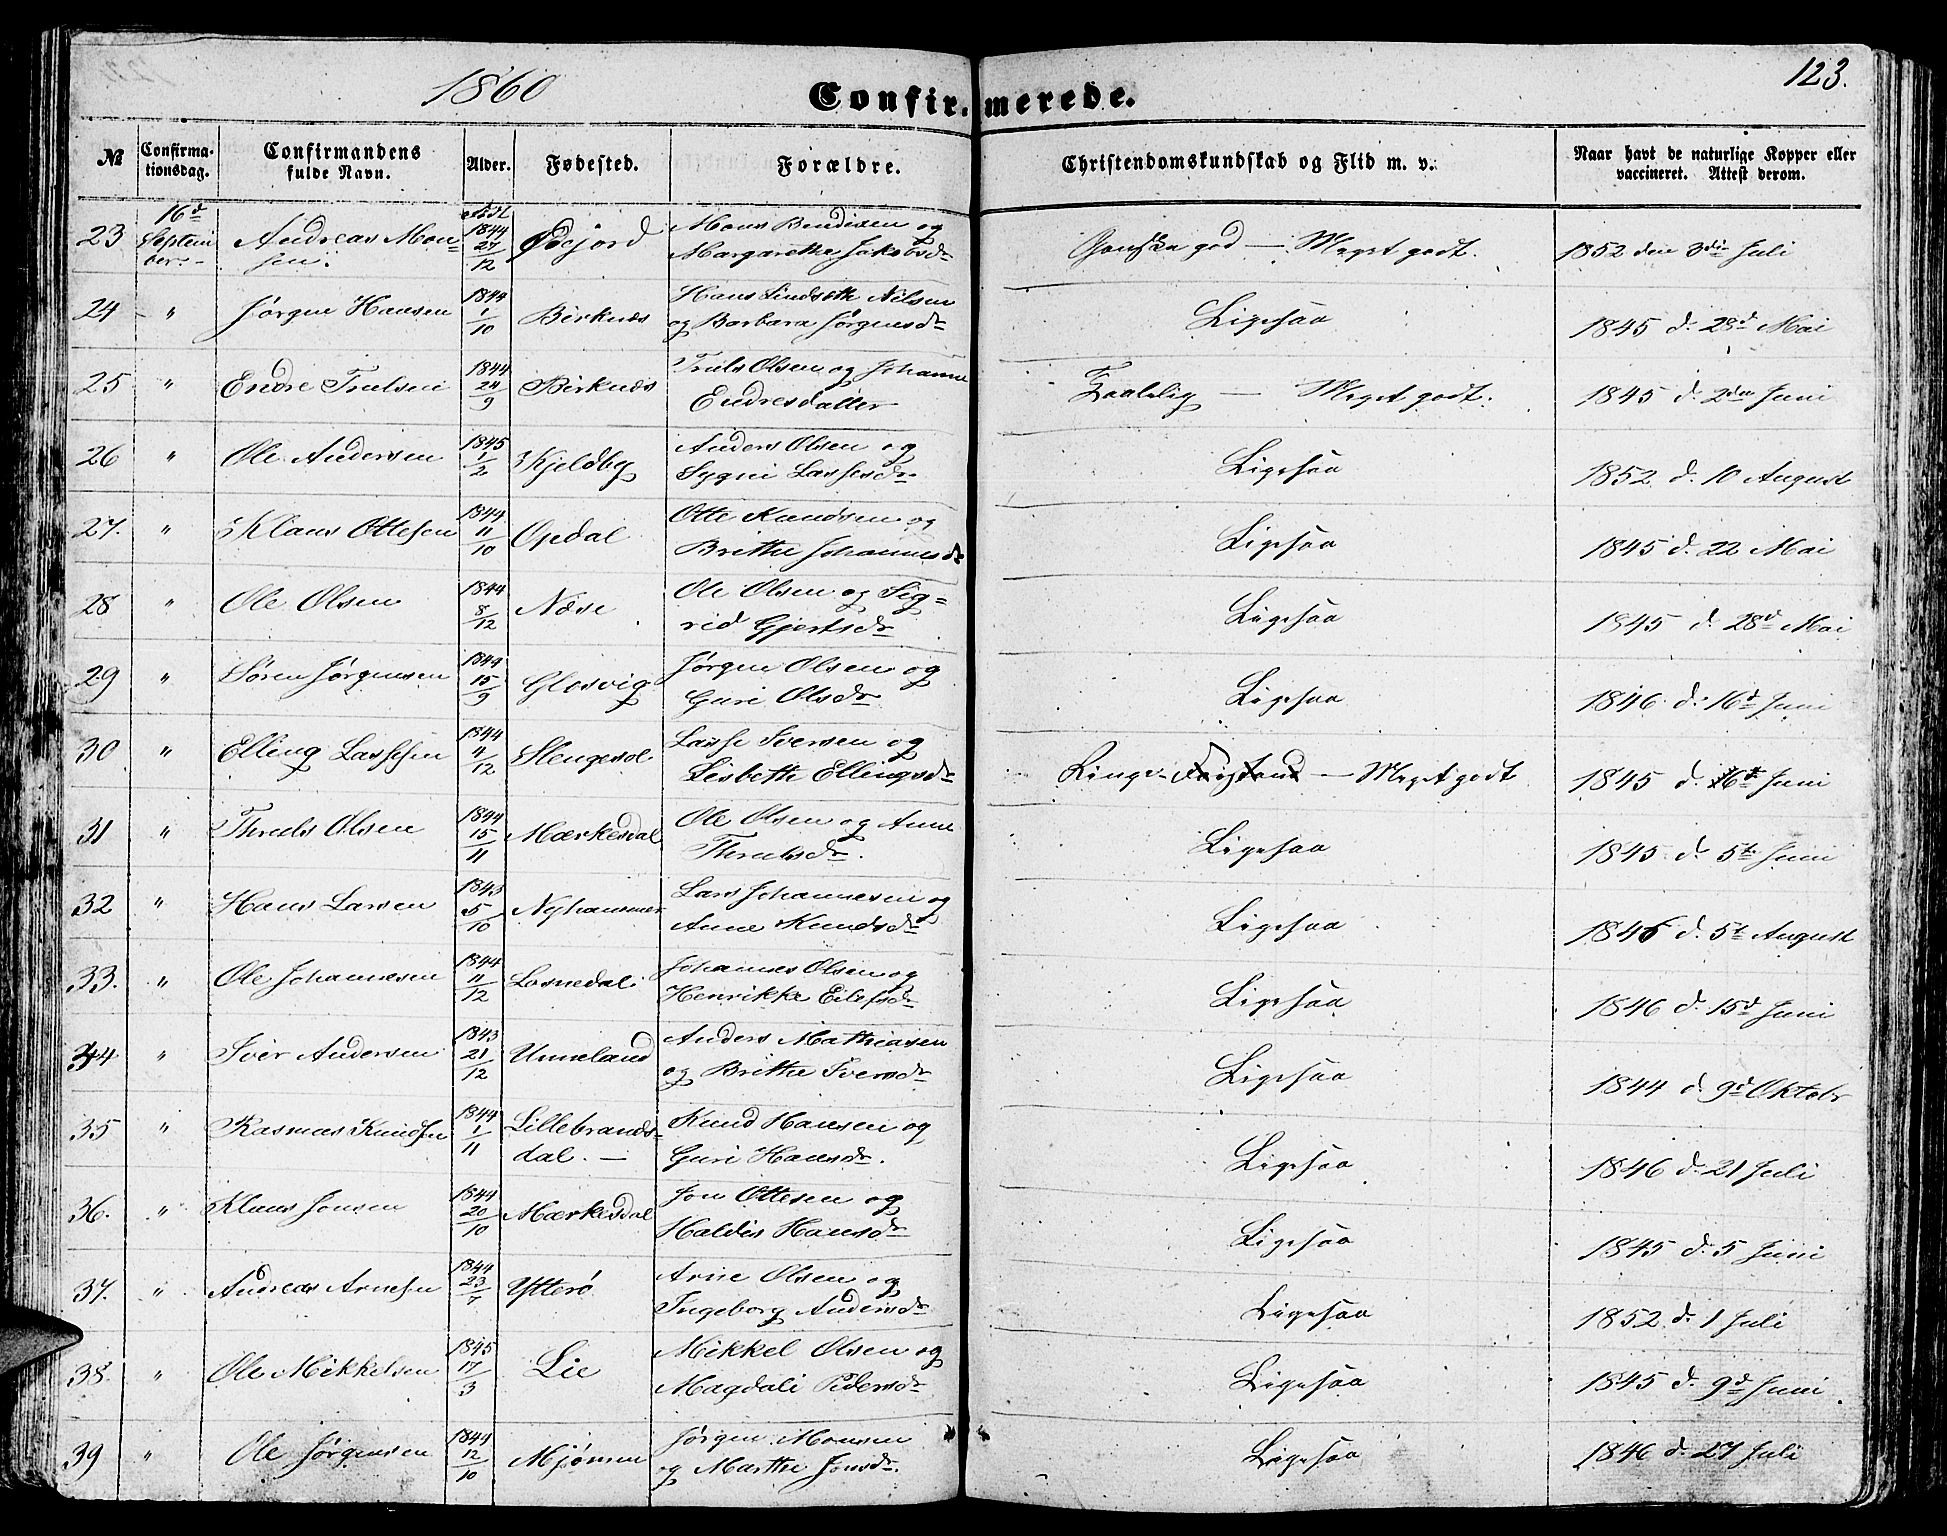 1860
Confirmerede.
123.
№ Confirmationsdag. Confirmandens fulde Navn. Alder. Fødested. Forældre. Christendomskundskab og Flid m. v. Naar havt de naturlige Kopper eller vaccineret. Attest derom.
23 16d September Andreas Monsen. født 1844 27/12 Øvejord Mons Bendixen og Margarethe Jakobsdr Ganske god — Meget godt. 1852 den 3die Juli
24 " Jørgen Hansen 1844 1/10 Birknæs Hans Lindseth Nilsen og Barbara Jørgensdr Ligesaa 1845 d. 23d Mai
25 " Endre Trulsen 1844 24/9 Birknæs Truls Olsen og Johanne Endresdatter Taalelig — Meget godt. 1845 d. 2den Juni
26 " Ole Andersen 1845 1/2 Kjeldby Anders Olsen og Sygni Lassesdr Ligesaa 1852 d. 10 August
27. " Klaus Ottesen 1844 11/10 Opdal Otte Knudsen og Brithe Johannesdr Ligesaa 1845 d. 22 Mai
28 " Ole Olsen 1844 8/12 Næse Ole Olsen og Sigrid Gjertsdr Ligesaa 1845 d. 28d Mai
29 " Søren Jørgensen 1844 15/9 Glosvig Jørgen Olsen og Guri Olsdr Ligesaa 1846 d. 16d Juni
30 " Elling Lassesen 1844 4/12 Slengesol Lasse Iversen og Lisbethe Ellingsdr Ringe — Meget godt 1845 d. 6te Juni
31 " Thruls Olsen 1844 15/11 Mærkesdal Ole Olsen og Anne Thrulsdr. Ligesaa 1845 d. 5te Juni
32 " Hans Larsen 1843 5/10 Nyhammer Lars Johannesen og Anne Knudsdr Ligesaa 1846 d. 5te August
33. " Ole Johannesen 1844 11/12 Losnedal Johannes Olsen og Henrikke Eilefsdr Ligesaa 1846 d. 15d Juni
34 " Iver Andersen 1843 21/12 Unneland Anders Mathiasen og Brithe Iversdr Ligesaa 1844 d. 9d Oktobr
35 " Rasmus Knudsen 1844 1/11 Lillebrandsdal. — Knud Hansen og Guri Hansdr. Ligesaa 1846 d. 21 Juli
36. " Klaus Jonsen 1844 20/10 Mærkesdal Jon Ottesen og Haldis Hansdr Ligesaa 1845 d. 5 Juni
37. " Andreas Arnesen 1844 23/7 Ytterø Arne Olsen og Ingeborg Andersdr Ligesaa 1852 d. 1 Juli
38. " Ole Mikkelsen 1845 17/3 Lie Mikkel Olsen og Magdali Pedersdr Ligesaa 1845 d. 9d Juni
39 " Ole Jørgensen 1844 12/10 Mjømen Jørgen Monsen og Marthe Jonsdr. Ligesaa 1846 d. 27 Juli